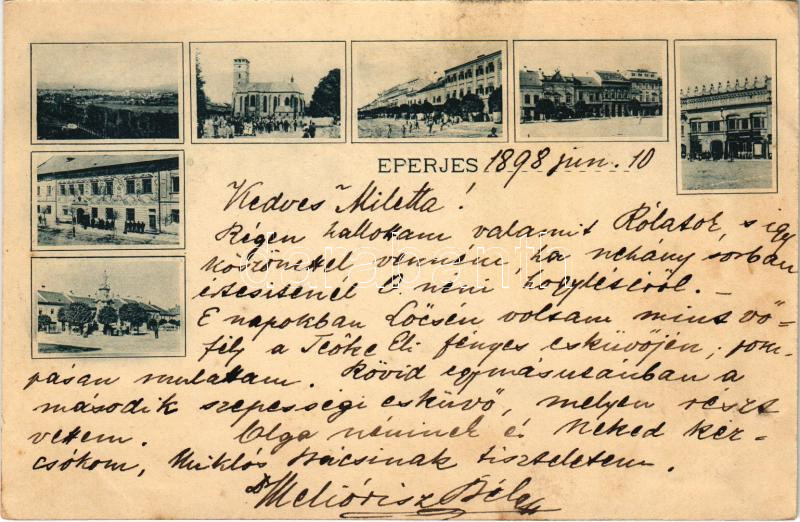 EPERJES 1898 jun. 10
Kedves Miletta!
Régen hallottam valamit Rólatok, s így
köszönettel venném, ha nehány sorban
értesitenél b. nem hogylétéről. –
E napokban Lőcsén voltam mint vő-
fély a Teőke Eli fényes esküvőjén; pom-
pásan mulattam. Rövid egymásutánban a
második szepességi esküvő, melyen részt
vettem. Olga néninek és Neked kéz-
csókom, Miklós bácsinak tiszteletem.
Dr Meliórisz Béla
darabanth